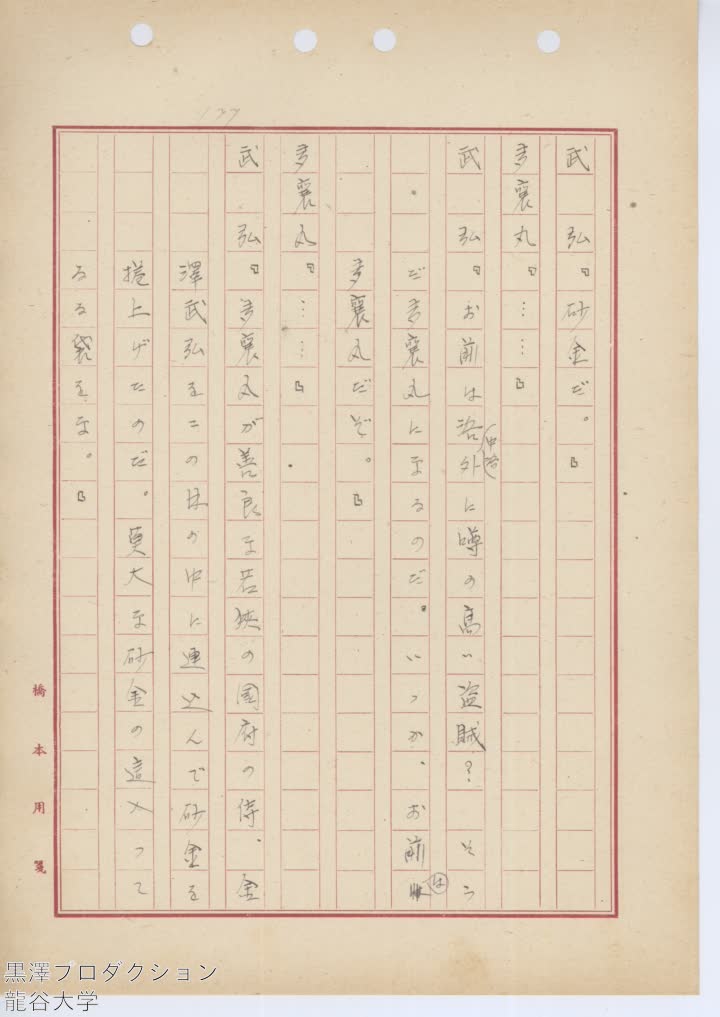 137
武　弘『砂金だ。』
多襄丸『……』
武　弘『お前は洛外に噂の高い盗賊？　そう
だ多襄丸になるのだ。いつか、お前は
多襄丸だぞ。』
多襄丸『……』
武　弘『多襄丸が善良な若狭の国府の侍、金
澤武弘をこの林の中に連込んで砂金を
捲上げたのだ。莫大な砂金の這入って
ゐる袋をな。』
橋本用箋
黒澤プロダクション
龍谷大学